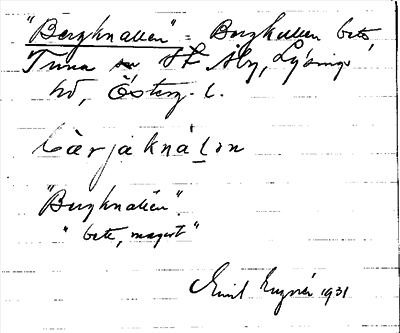 "Bergknallen" = Bergkullen bete,
Tuna St Åby, Lysings
hd, Österg. l.
bærjaknalon
"Bergknallen".
"bete, magert"
Emil 1931